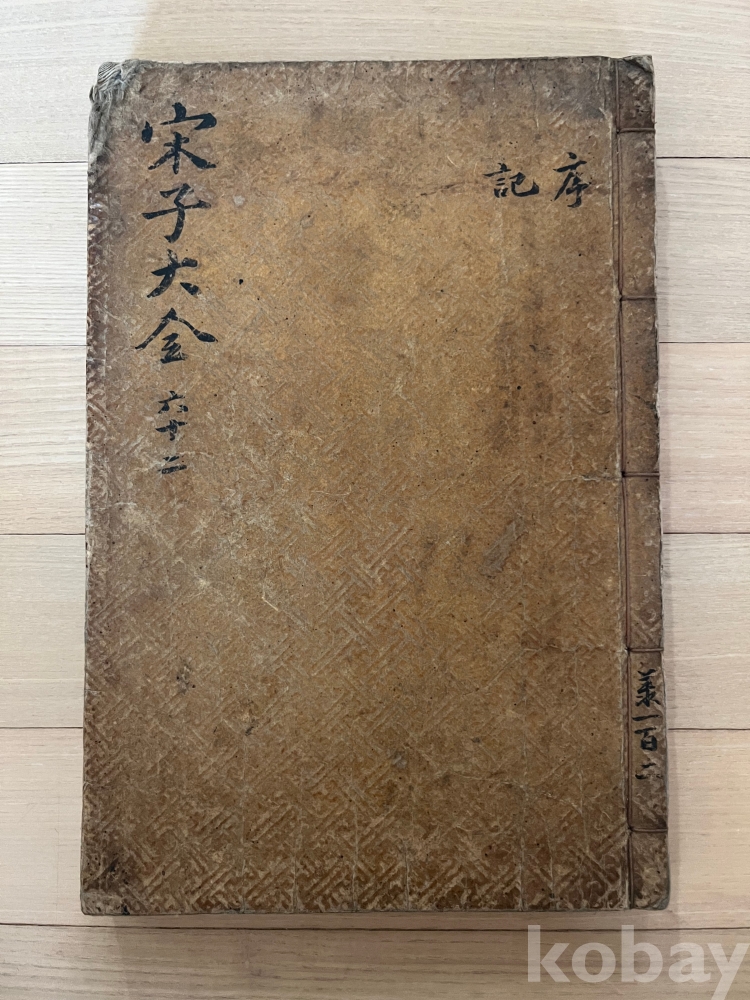 序
記
宋子大全 六十二
一百二
kobay